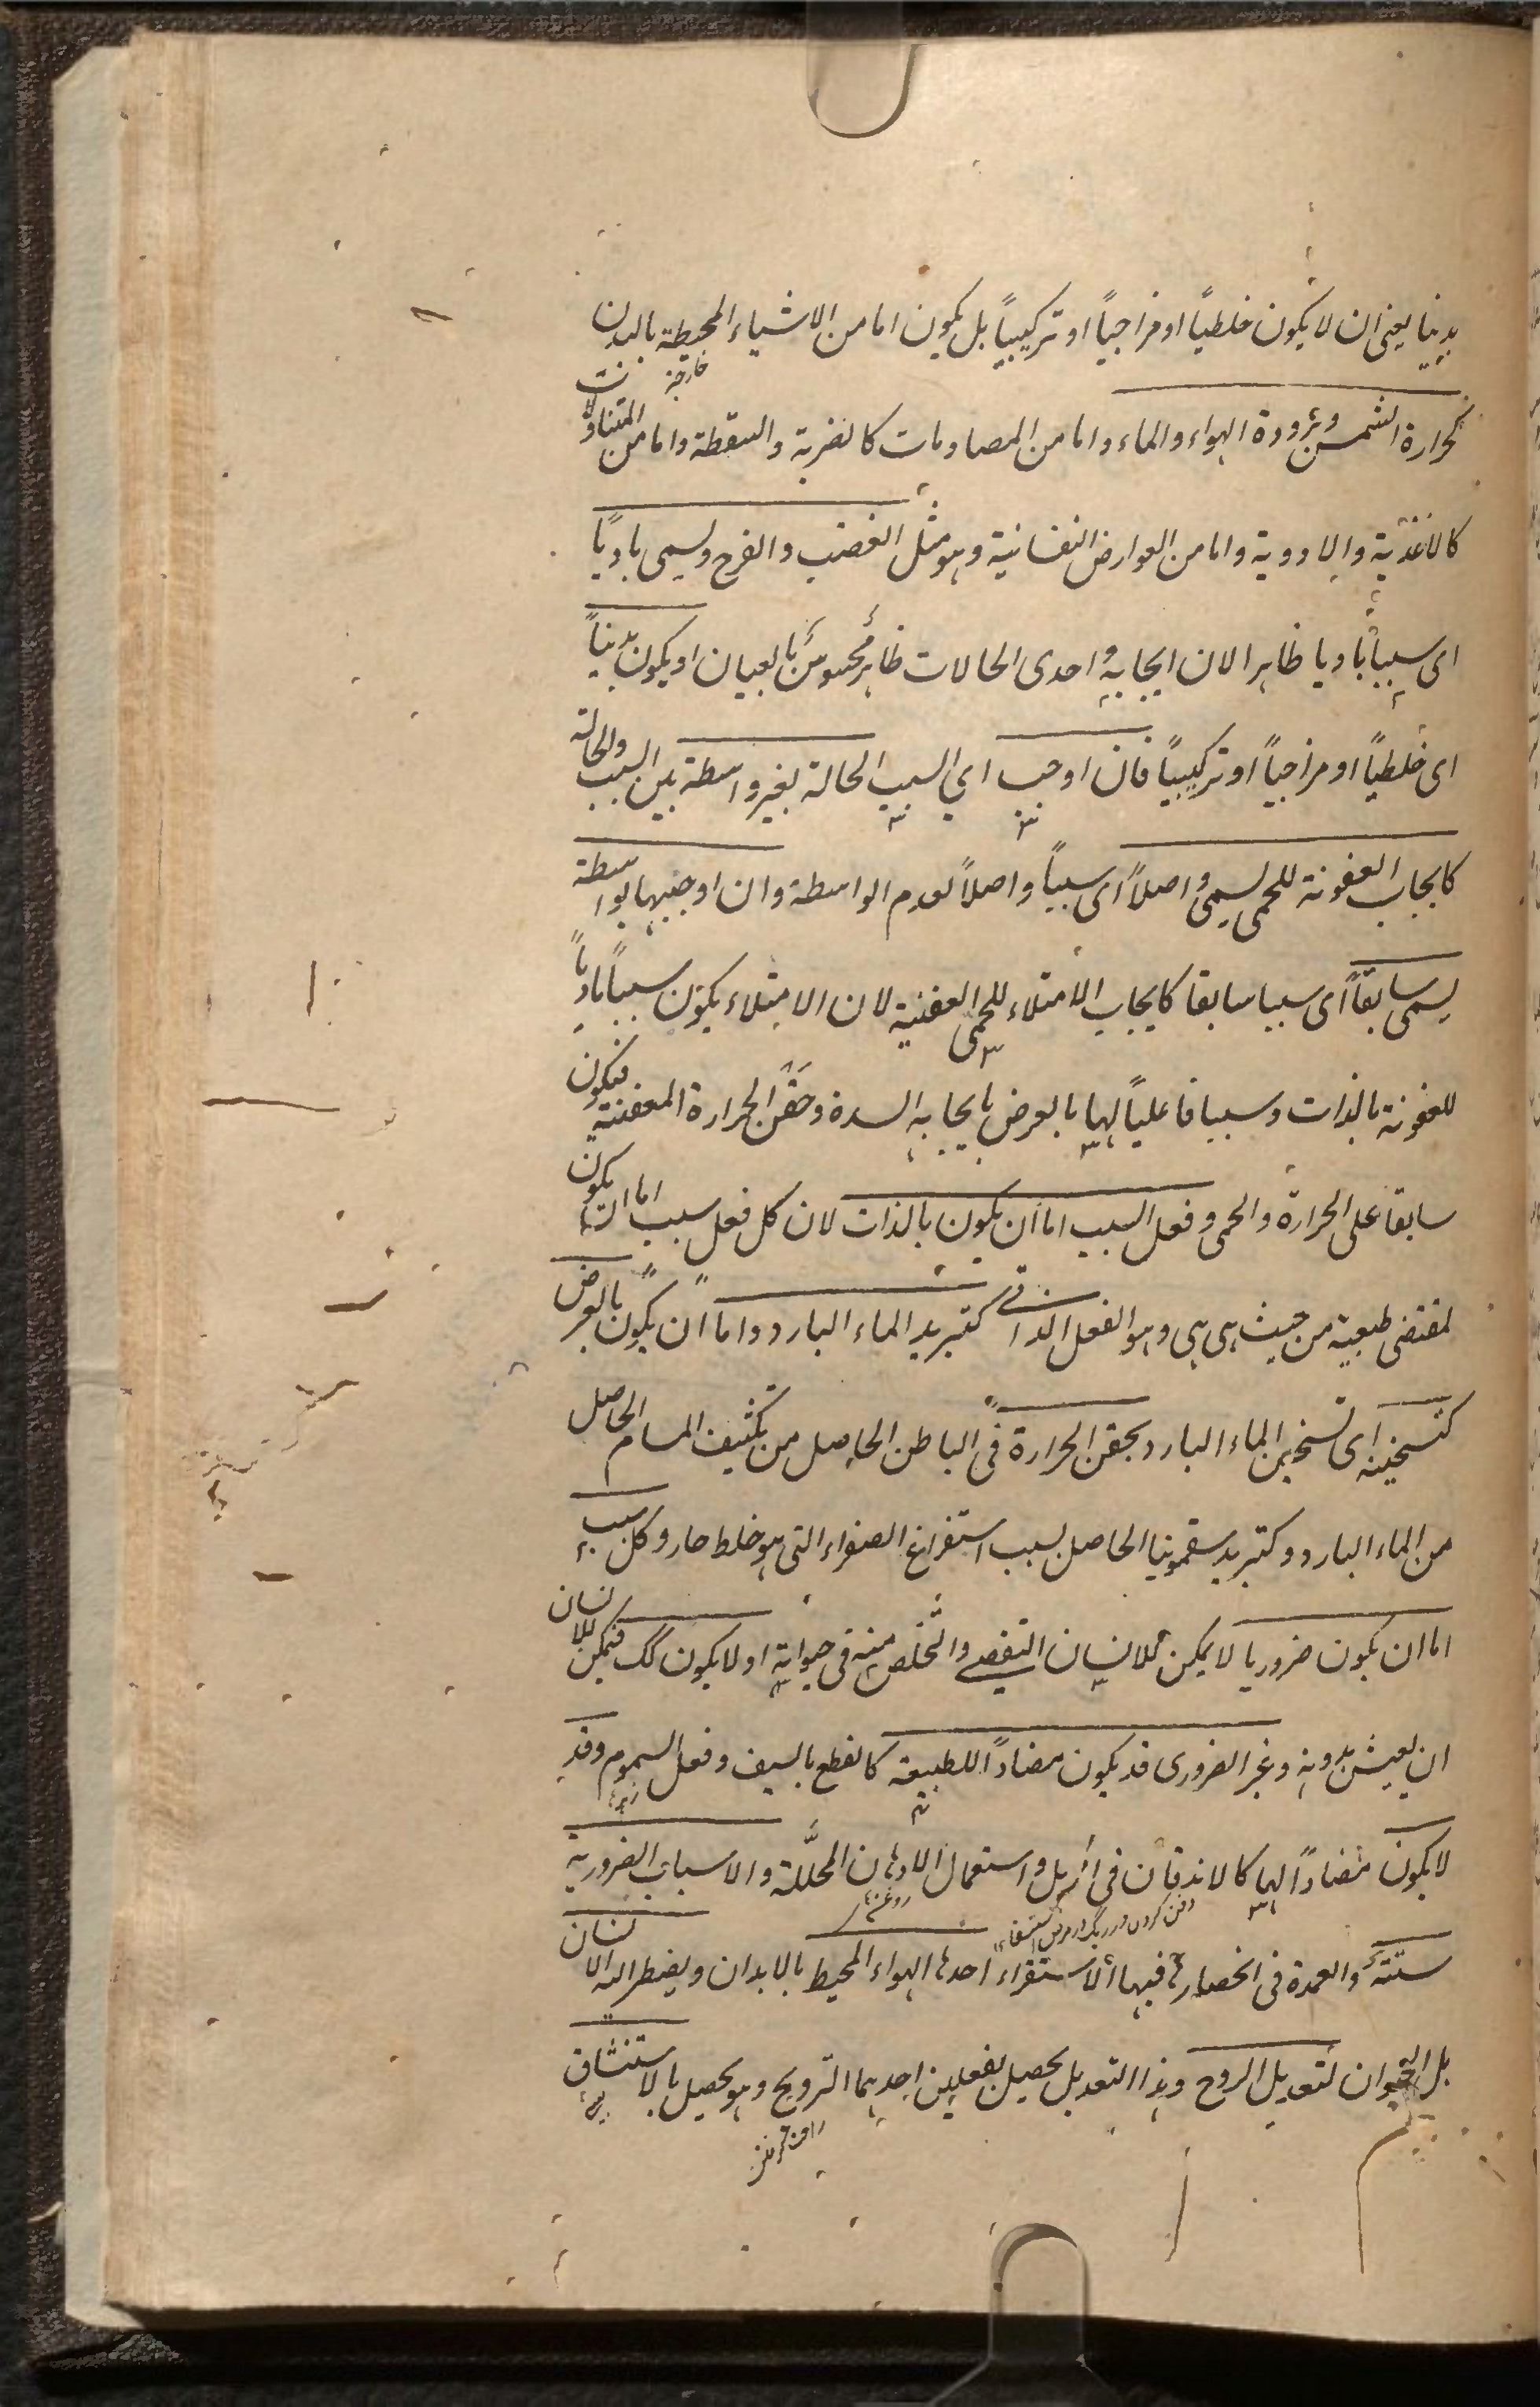 بدنيا يعنى ان لا يكون خلطياً او مزاجياً او تركيبياً بل يكون اما من الاشياء المحيطة بالبدن
خارجة
كحرارة الشمس وبرودة الهواء والماء واما من المصادمات كالضربة والسقطة واما من المتناولات
كالاغذية والادوية واما من العوارض النفسانية وهو مثل الغضب والفرح ويسمى بادياً
اى سبباً باديا ظاهرا لان ايجابه احدى الحالات ظاهر محسوس بالعيان او يكون بدنياً
اى خلطياً او مزاجياً او تركيبياً فان اوجب اى السبب الحالة بغير واسطة بين السبب والحالة
كايجاب العفونة للحمى يسمى واصلاً اى سبباً واصلاً لعدم الواسطة وان اوجبها بواسطة
يسمى سابقاً اى سببا سابقا كايجاب الامتلاء للحمى العفنية لان الامتلاء يكون سبباً بادياً
للعفونة بالذات وسببا فاعلياً لها بالعرض بايجابه السدة وحقن الحرارة المعفنة فيكون
سابقا على الحرارة والحمى وفعل السبب اما ان يكون بالذات لان كل فعل سبب اما ان يكون
لمقتضى طبعية من حيث هى هى وهو الفعل الذاتى كتبريد الماء البارد واما ان يكون بالعرض
كتسخينه اى تسخين الماء البارد بحقن الحرارة فى الباطن الحاصل من تكثيف المسام الحاصل
من الماء البارد وكتبريد سقمونيا الحاصل بسبب استفراغ الصفراء التى هو خلط حار وكل سبب
اما ان يكون ضروريا لا يمكن للانسان التفصى والتخلص منه فى حيواته او لا يكون كك فيمكن للانسان
ان يعيش بدونه وغير الضرورى قد يكون مضاداً للطبيعة كالقطع بالسيف وفعل السموم وقد
لا يكون مضاداً لها كالاندفان فى الرمل واستعمال الادهان المحللة والاسباب الضرورية
دفن كردن در ريگ در مرض استسقاء
ستة والعمدة فى انحصارها فيها الاستقراء احدها الهواء المحيط بالابدان ويضطر اليه الانسان
بل الحيوان لتعديل الروح وهذا التعديل يحصل بفعلين احدهما الترويح وهو يحصل بالاستنشاق